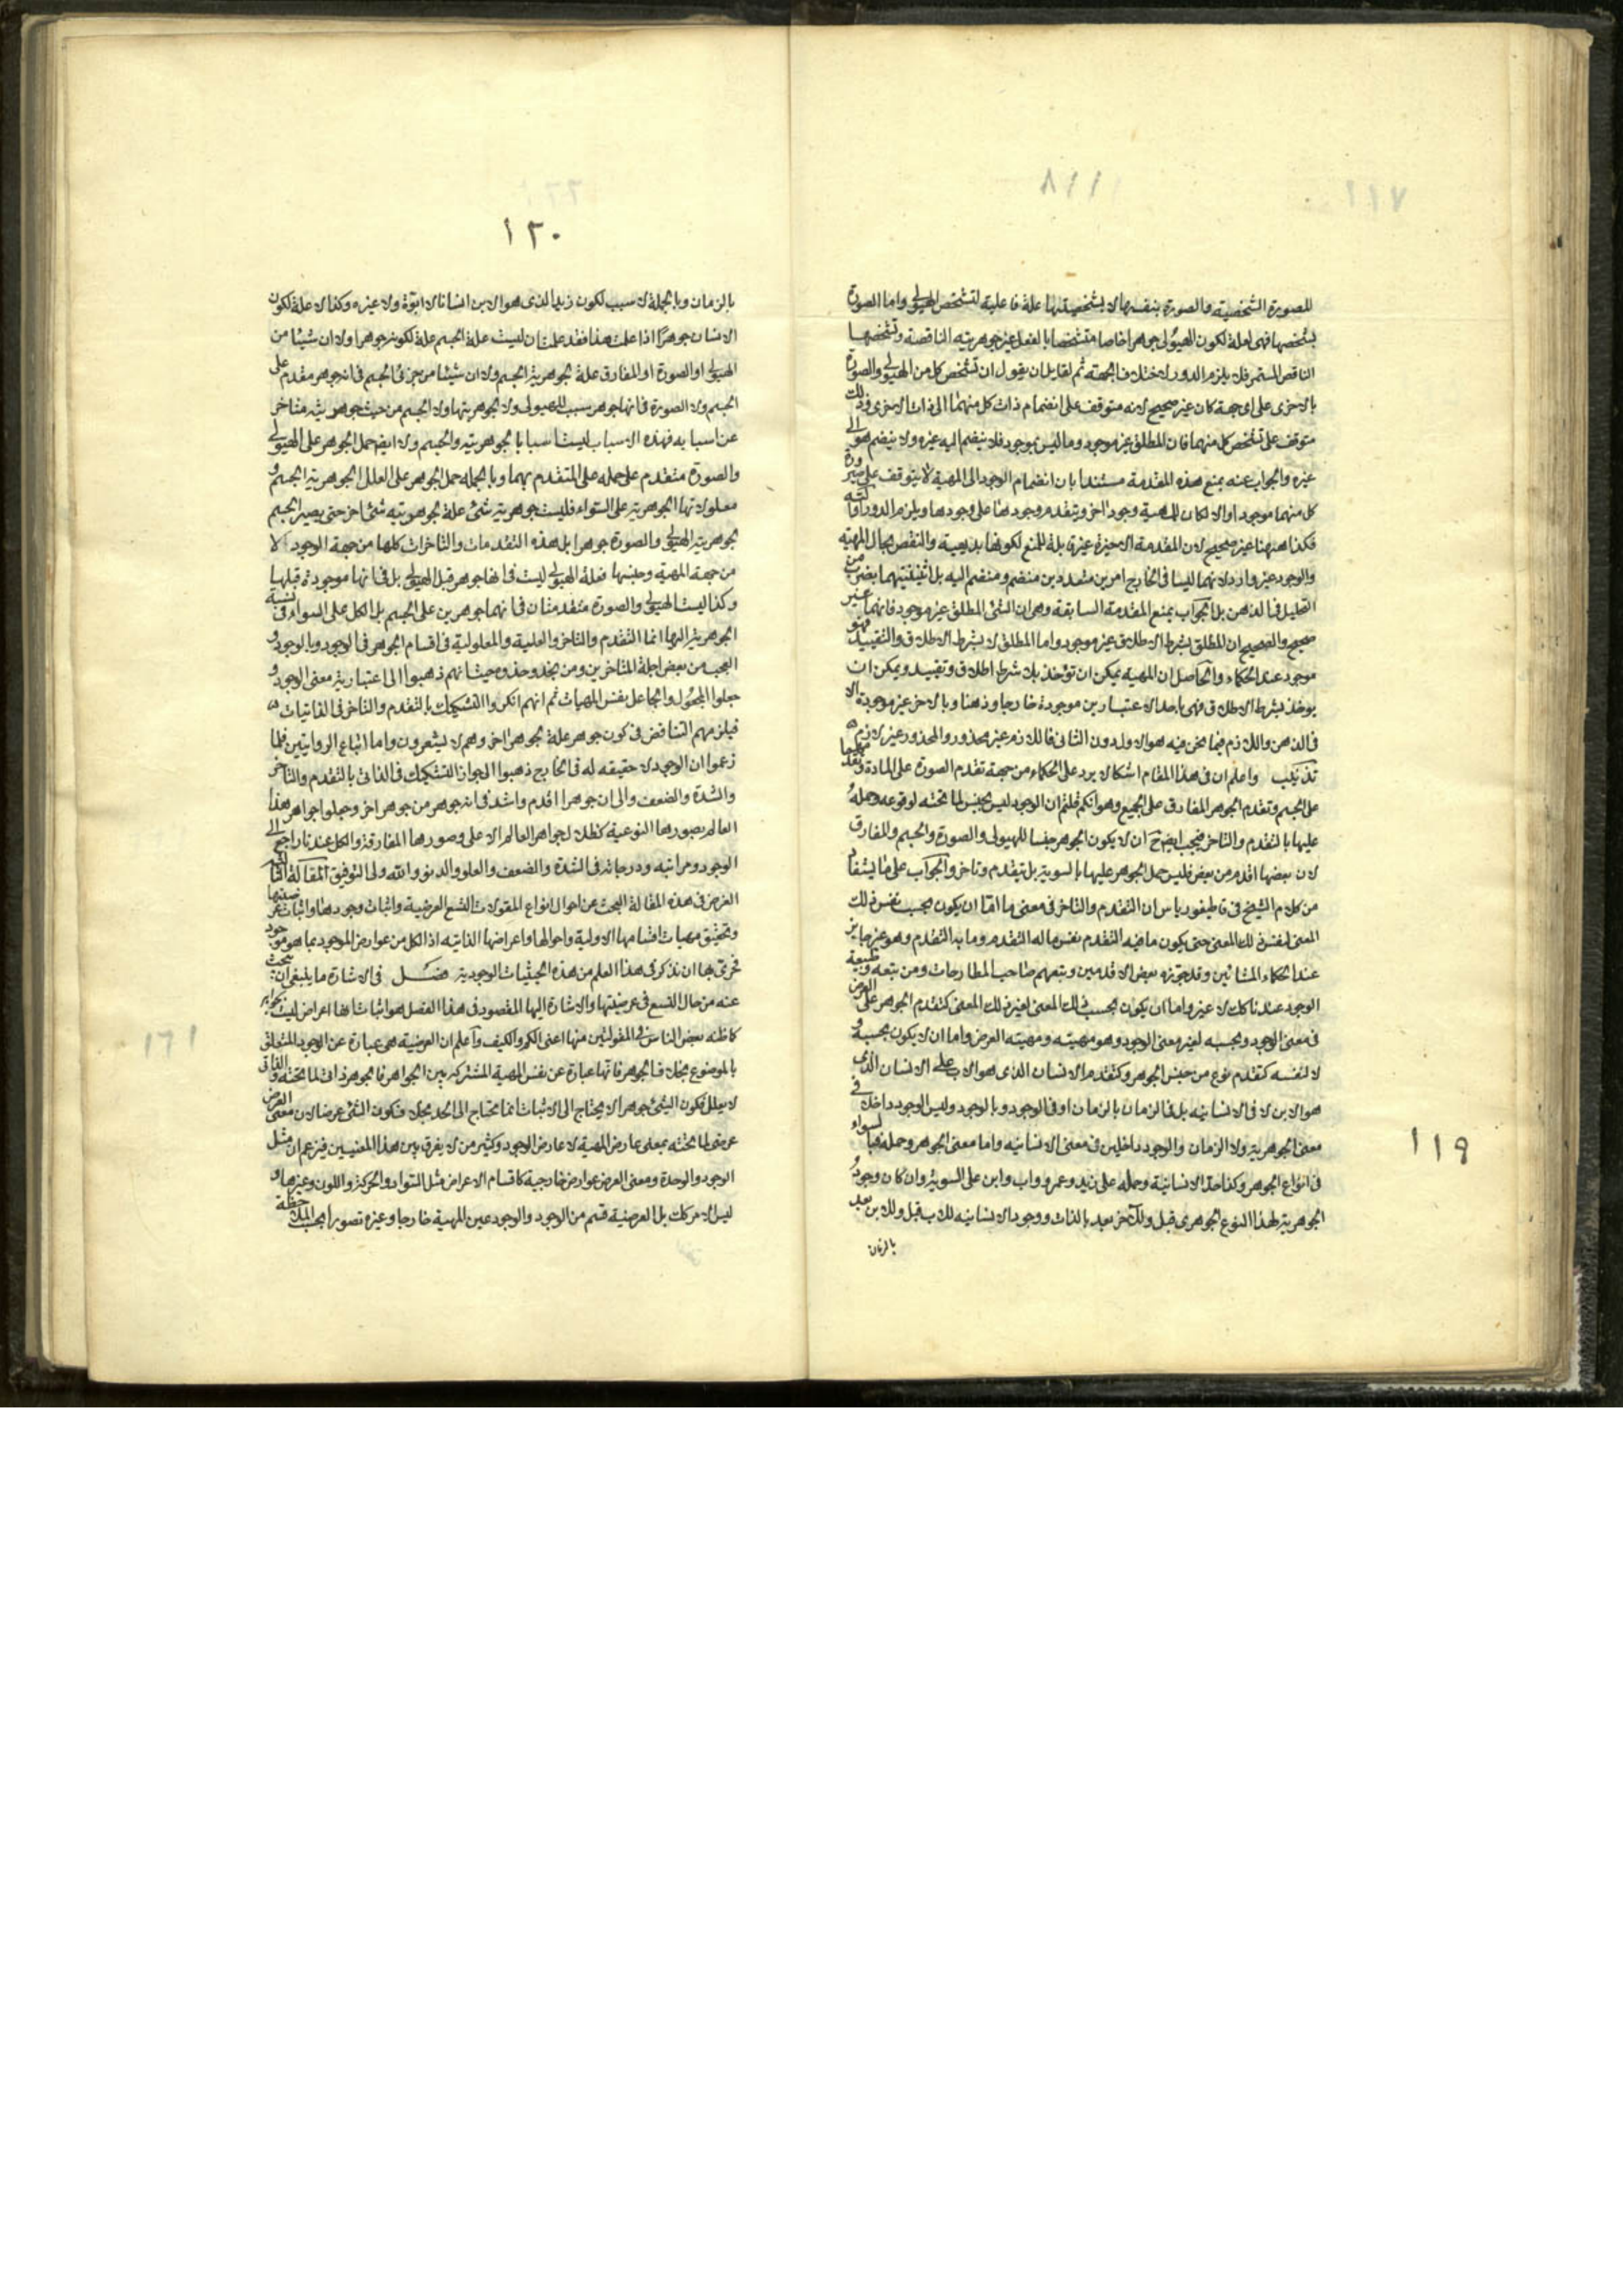 ١١٧
١١٨
للصورة الشخصية والصورة بنفسها لا بشخصيتها علة فاعلية لتشخص الهيولى واما الصورة
بتشخصها فهى لعلة لكون الهيولى جوهرا خاصا متشخصا بالفعل غير جوهريته الناقصة وتشخصها
الناقص المستمر فلا يلزم الدور لاختلاف الجهة ثم لقايل ان يقول ان تشخص كل من الهيولى والصورة
بالاخرى على اى جهة كان غير صحيح لانه متوقف على انضمام ذات كل منهما الى ذات الاخرى وذلك
متوقف على تشخص كل منهما فان المطلق غير موجود وما ليس بموجود فلا ينضم اليه غيره ولا ينضم هو الى
غيره والجواب عنه بمنع هذه المقدمة مستندا بان انضمام الوجود الى المهية لا يتوقف على صيرورة
كل منهما موجودا والا لكان للمهية وجود اخر ويتقدم وجودها على وجودها ويلزم الدور او التسلسل
فكذا ههنا غير صحيح لان المقدمة الاخيرة غير قابلة للمنع لكونها بديهية والنقض بحال المهية
والوجود غير وارد لانهما ليسا فى الخارج امرين متعددين منضم ومنضم اليه بل اثنينيتهما بضرب من
التحليل فى الذهن بل الجواب بمنع المقدمة السابقة وهى ان الشئ المطلق غير موجود فانها غير
صحيح والصحيح ان المطلق بشرط الاطلاق غير موجود واما المطلق لا بشرط الاطلاق والتقييد فهو
موجود عند الحكماء والحاصل ان المهية يمكن ان تؤخذ بلا شرط اطلاق وتقييد ويمكن ان
يوخذ بشرط الاطلاق فهى باحد الاعتبارين موجودة خارجا وذهنا وبالاخر غير موجودة الا
فى الذهن واللازم فيما نحن فيه هو الاول دون الثانى فاللازم غير محذور والمحذور غير لازم
تذنيب واعلم ان فى هذا المقام اشكالا يرد على الحكماء من جهة تقدم الصورة على المادة وتقدمهما
على الجسم وتقدم الجوهر المفارق على الجميع وهو انكم قلتم ان الوجود ليس بجنس لما تحته لوقوعه وحمله
عليها بالتقدم والتاخر فيجب ايضا ح ان لا يكون الجوهر جنسا للهيولى والصورة والجسم والمفارق
لان بعضها اقدم من بعض فليس حمل الجوهر عليها بالسوية بل بتقدم وتاخر والجواب على ما يستفاد
من كلام الشيخ فى قاطيغورياس ان التقدم والتاخر فى معنى ما اما ان يكون بحسب نفس ذلك
المعنى لنفس ذلك المعنى حتى يكون ما فيه التقدم بنفس ما له التقدم وما به التقدم وهو غير جايز
عند الحكماء المشائين وقد جوزه بعض الاقدمين وتبعهم صاحب المطارحات ومن تبعه وطبيعة
الوجود عندنا كذلك لا غير واما ان يكون بحسب ذلك المعنى لغير ذلك المعنى كتقدم الجوهر على العرض
فى معنى الوجود وبحسبه لغير معنى الوجود وهو مهيته ومهية العرض واما ان لا يكون بحسبه و
لا لنفسه كتقدم نوع من جنس الجوهر وكتقدم الانسان الذى هو الاب على الانسان الذى
هو الابن لا فى الانسانيه بل فى الزمان بالزمان او فى الوجود وبالوجود وليس الوجود داخلا فى
معنى الجوهرية ولا الزمان والوجود داخلين فى معنى الانسانيه واما معنى الجوهر وحمله فهما سواء
فى انواع الجوهر وكذا حد الانسانية وحمله على زيد وعمرو واب وابن على السوية وان كان وجود
الجوهرية لهذا النوع الجوهرى قبل ولآخر بعد بالذات ووجود الانسانيه للاب قبل وللابن بعد
بالزمان
١١٩
١٢٠
بالزمان وبالجملة لا سبب لكون زيد الذى هو الابن انسانا لا ابوة ولا غيره وكذا لا علة لكون
الانسان جوهرا اذا علمت هذا فقد علمت ان ليست علة الجسم علة لكونه جوهرا ولا ان شيئا من
الهيولى او الصورة او المفارق علة لجوهرية الجسم ولا ان شيئا من جزئى الجسم فى انه جوهر مقدم على
الجسم ولا الصورة فى انها جوهر سبب للهيولى ولا لجوهريتها ولا الجسم من حيث جوهريته متاخر
عن اسبابه فهذه الاسباب ليست اسبابا لجوهريته والجسم ولا ايضا حمل الجوهر على الهيولى
والصورة متقدم على حمله على المتقدم بهما وبالجملة حمل الجوهر على العلل الجوهرية الجسم و
معلولاتها الجوهرية على السواء فليست جوهرية شئ علة لجوهرية شئ اخر حتى يصير الجسم
بجوهرية الهيولى والصورة جوهرا بل هذه التقدمات والتاخرات كلها من جهة الوجود لا
من جهة المهية وجنسها فعلة الهيولى ليست فى انها جوهر قبل الهيولى بل فى انها موجودة قبلها
وكذا ليست الهيولى والصورة متقدمتان فى انهما جوهرين على الجسم بل الكل على السواء فى نسبة
الجوهرية اليها انما التقدم والتاخر والعلية والمعلولية فى اقسام الجوهر فى الوجود وبالوجود و
العجب من بعض اجلة المتاخرين ومن يحذو حذوه حيث انهم ذهبوا الى اعتبارية معنى الوجود و
جعلوا المجعول والجاعل نفس المهيات ثم انهم انكروا التشكيك بالتقدم والتاخر فى الذاتيات
فيلزمهم التناقض فى كون جوهر علة لجوهر اخر وهم لا يشعرون واما اتباع الرواقيين فلما
زعموا ان الوجود لا حقيقه له فى الخارج ذهبوا الى جواز التشكيك فى الذاتى بالتقدم والتاخر
والشدة والضعف والى ان جوهرا اقدم واشد فى انه جوهر من جوهر اخر وجعلوا جواهر هذا
العالم بصورها النوعية كظلال لجواهر العالم الاعلى وصورها المفارقة والكل عندنا راجع الى
الوجود ومراتبه ودرجاته فى الشدة والضعف والعلو والدنو والله ولى التوفيق المقالة الثالثة
الغرض فى هذه المقالة البحث عن احوال انواع المقولات التسع العرضية واثبات وجودها واثبات عرضيتها
وتحقيق مهيات اقسامها الاولية واحوالها واعراضها الذاتيه اذ الكل من عوارض الموجود بما هو موجود
فحرى بها ان تذكر فى هذا العلم من هذه الحيثيات الوجودية فصل فى الاشارة ما ينبغى ان يبحث
عنه من حال التسع فى عرضيتها والاشارة اليها المقصود فى هذا الفصل هو اثبات انها اعراض ليست بجواهر
كما ظنه بعض الناس فى المقولتين منها اعنى الكم والكيف واعلم ان العرضية هى عبارة عن الوجود المتعلق
بالموضوع بخلاف الجوهر فانها عبارة عن نفس المهية المشتركة بين الجواهر فالجوهر ذاتى لما تحته والذاتى
لا يعلل فكون الشئ جوهرا لا يحتاج الى الاثبات انما يحتاج الى الحد بخلاف كون الشئ عرضا لان معنى العرض
عرضى لما تحته بمعنى عارض المهية لا عارض الوجود وكثير من لا يفرق بين هذا المعنيين فيزعم ان مثل
الوجود والوحدة ومعنى العرض عوارض خارجية كاقسام الاعراض مثل السواد والحركة واللون وغيرها و
ليس الامر كذلك بل العرضية قسم من الوجود والوجود عين المهية خارجا وغيره تصورا بحسب الملاحظة
١٢١